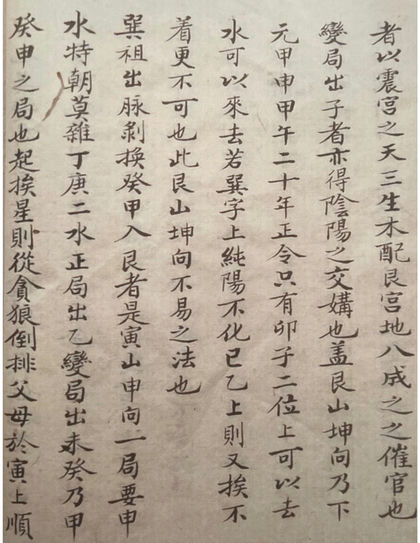 者以震宮之天三生木配艮宮地八成之之催官也
變局出子者亦得陰陽之交媾也蓋艮山坤向乃下
元甲申甲午二十年正令只有卯子二位上可以去
水可以來去若巽字上純陽不化已乙上則又挨不
着更不可也此艮山坤向不易之法也
巽祖出脉剝換癸甲入艮者是寅山申向一局要申
水特朝莫雜丁庚二水正局出乙變局出未癸乃甲
癸申之局也起挨星則從貪狼倒排父母於寅上順